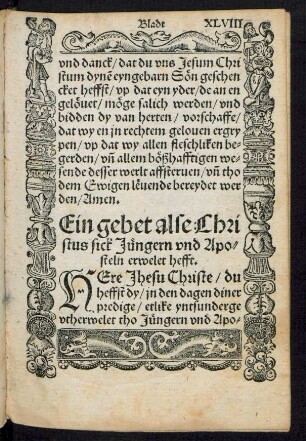 Bladt XLVIII
vnd danck / dat du vns Jesum Chri
stum dynē eyngebarn Sön geschen
cket heffst / vp dat eyn yder / de an en
gelöuet / möge salich werden / vnd
bidden dy van herten / vorschaffe /
dat wy en jn rechtem gelouen ergry-
pen / vp dat wy allen fleschliken be-
gerden / vn̄ allem bößhafftigen we-
sende desser werlt affsteruen / vn̄ tho
dem Ewigen leuende bereydet wer
den / Amen.
Ein gebet alse Chri
stus sick Jüngern vnd Apo-
steln erwelet hefft.
HEre Jhesu Christe / du
heffst dy / jn den dagen diner
predige / etlike ynsunderge
vtherwelet tho Jüngern vnd Apo-